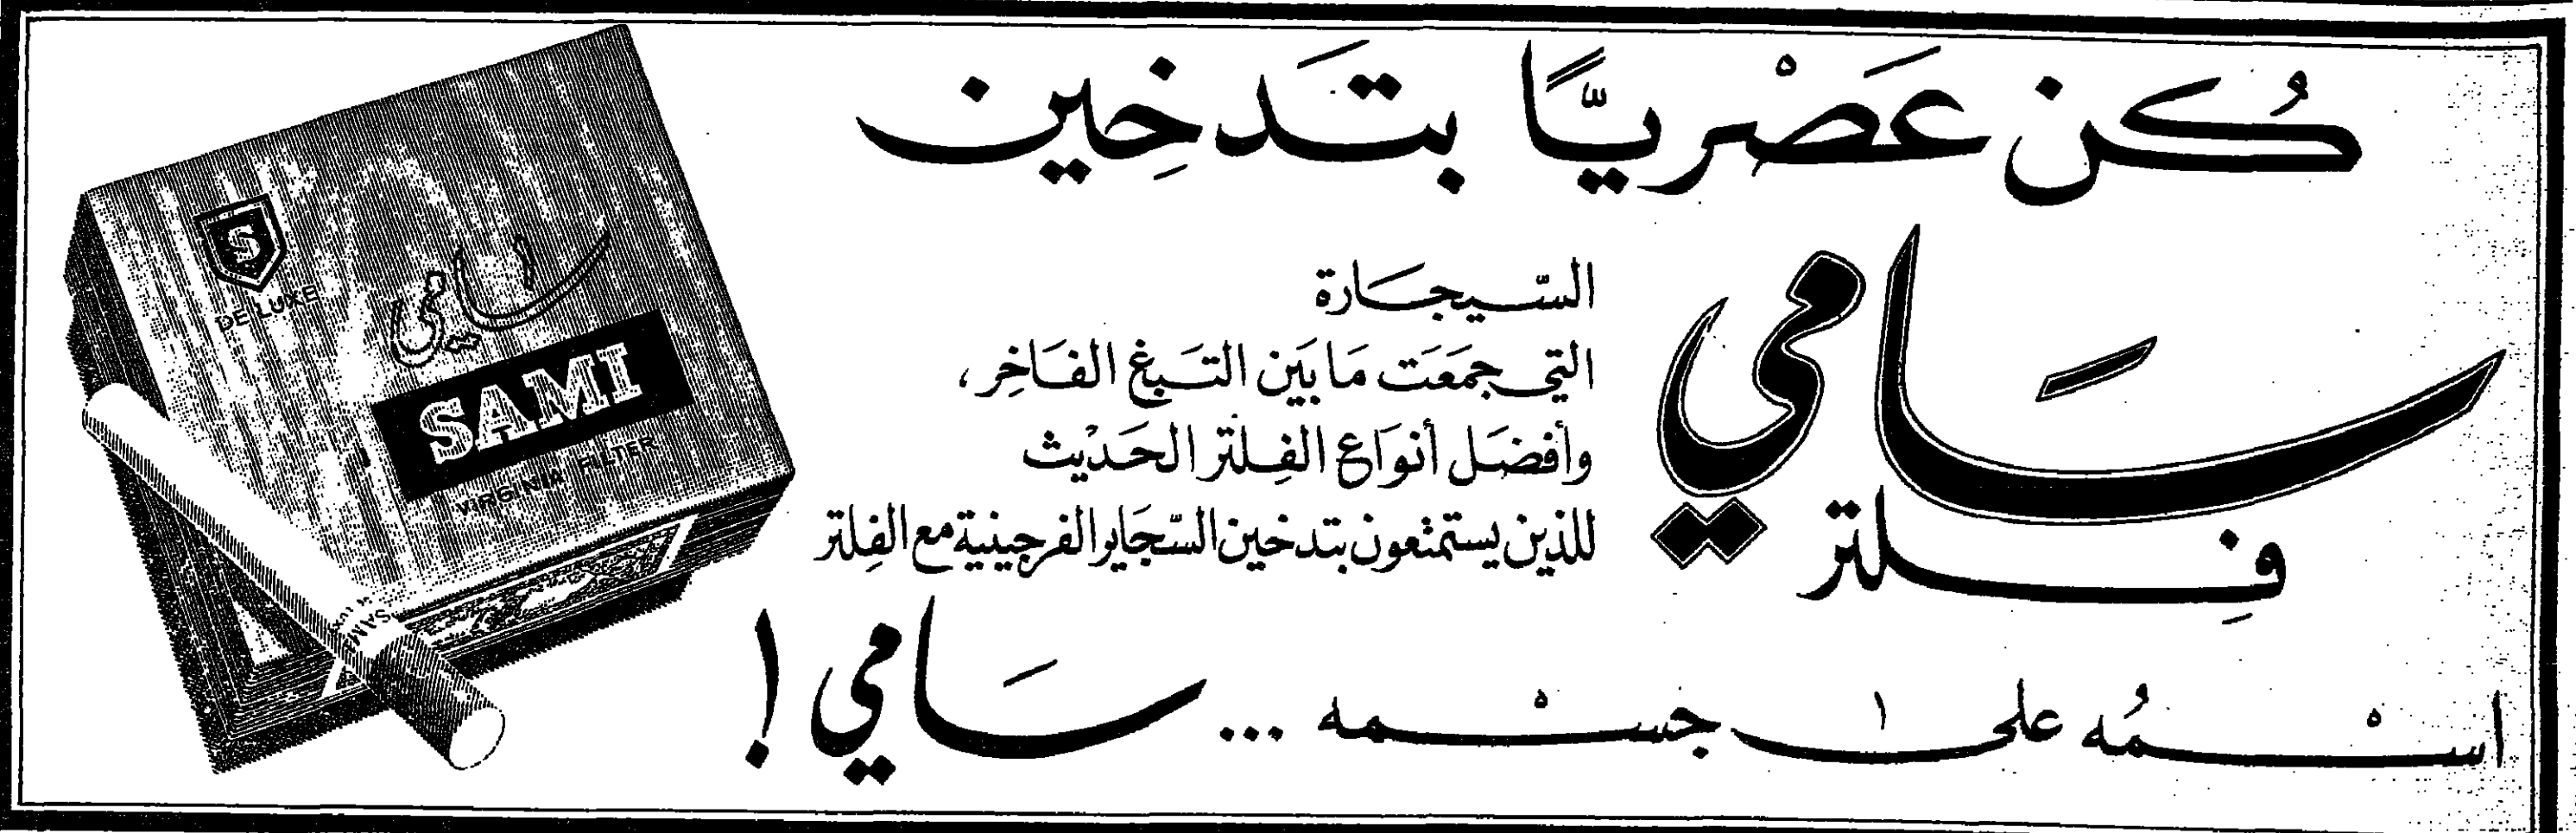 كُن عَصْريًّا بتَدخِين
سَامي
فِلتر
السّيجَارة
التي جمَعَت مَا بَين التبَغ الفَاخِر،
وأفضَل أنوَاع الفِلتر الحَديْث
للذين يستمتعون بتدخين السّجَاير الفرجينية مع الفِلتر
اسْمُه على جسْمه ... سَامي !
S
DE LUXE
سامي
SAMI
VIRGINIA FILTER